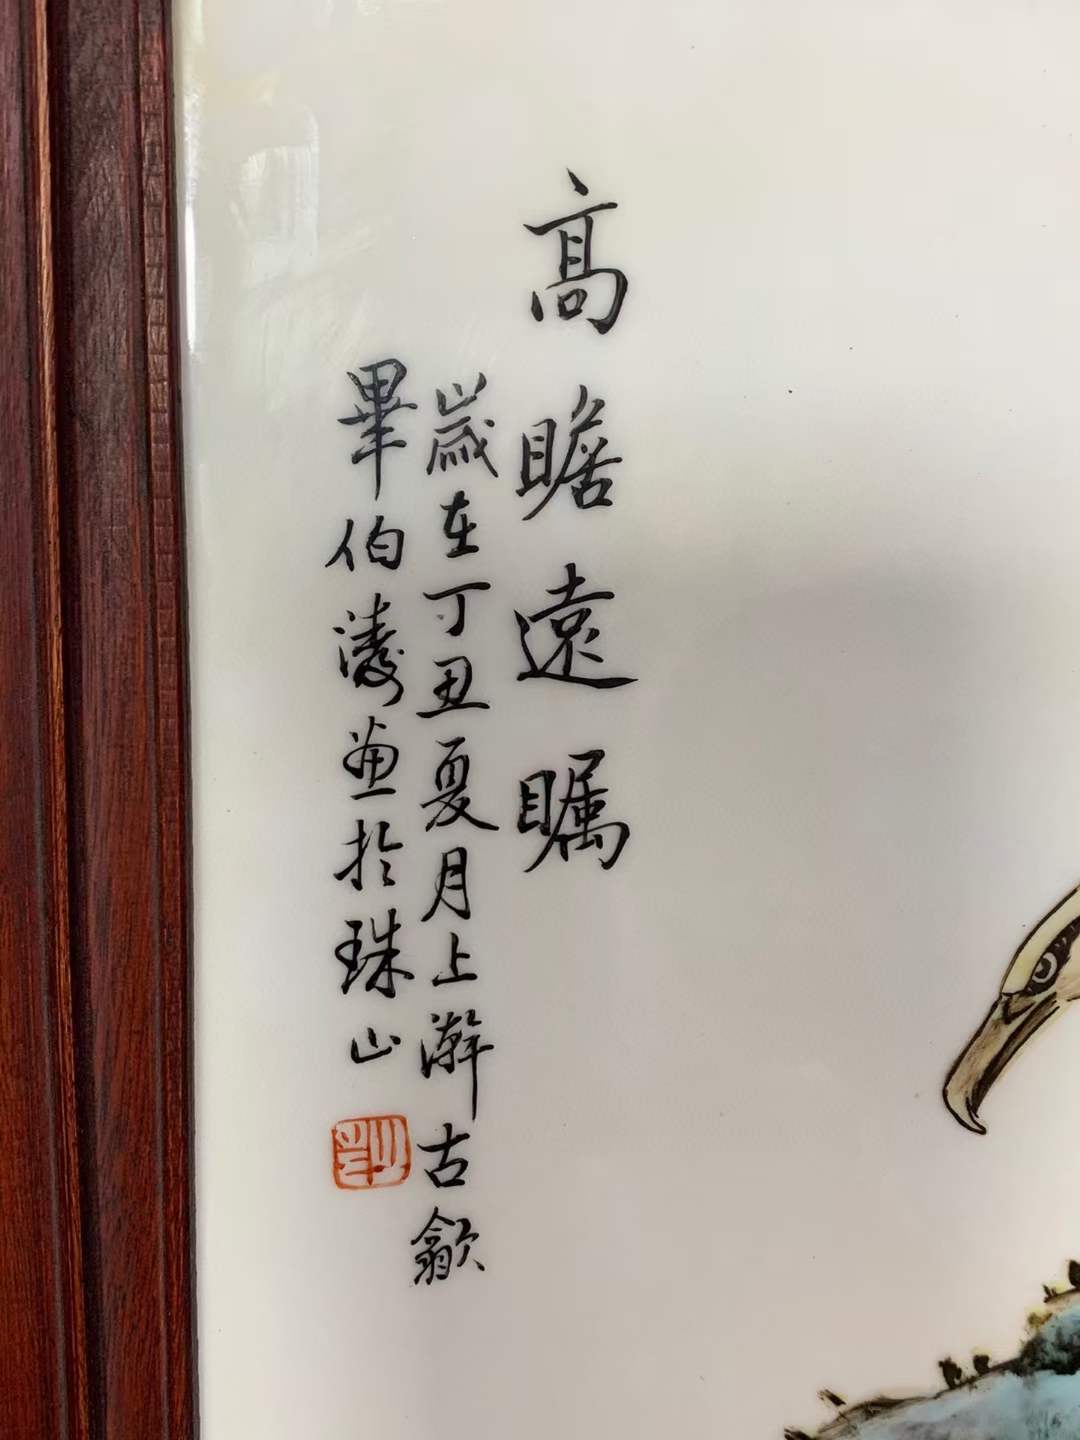 高瞻遠矚
歲在丁丑夏月上澣古歙
畢伯濤畫於珠山